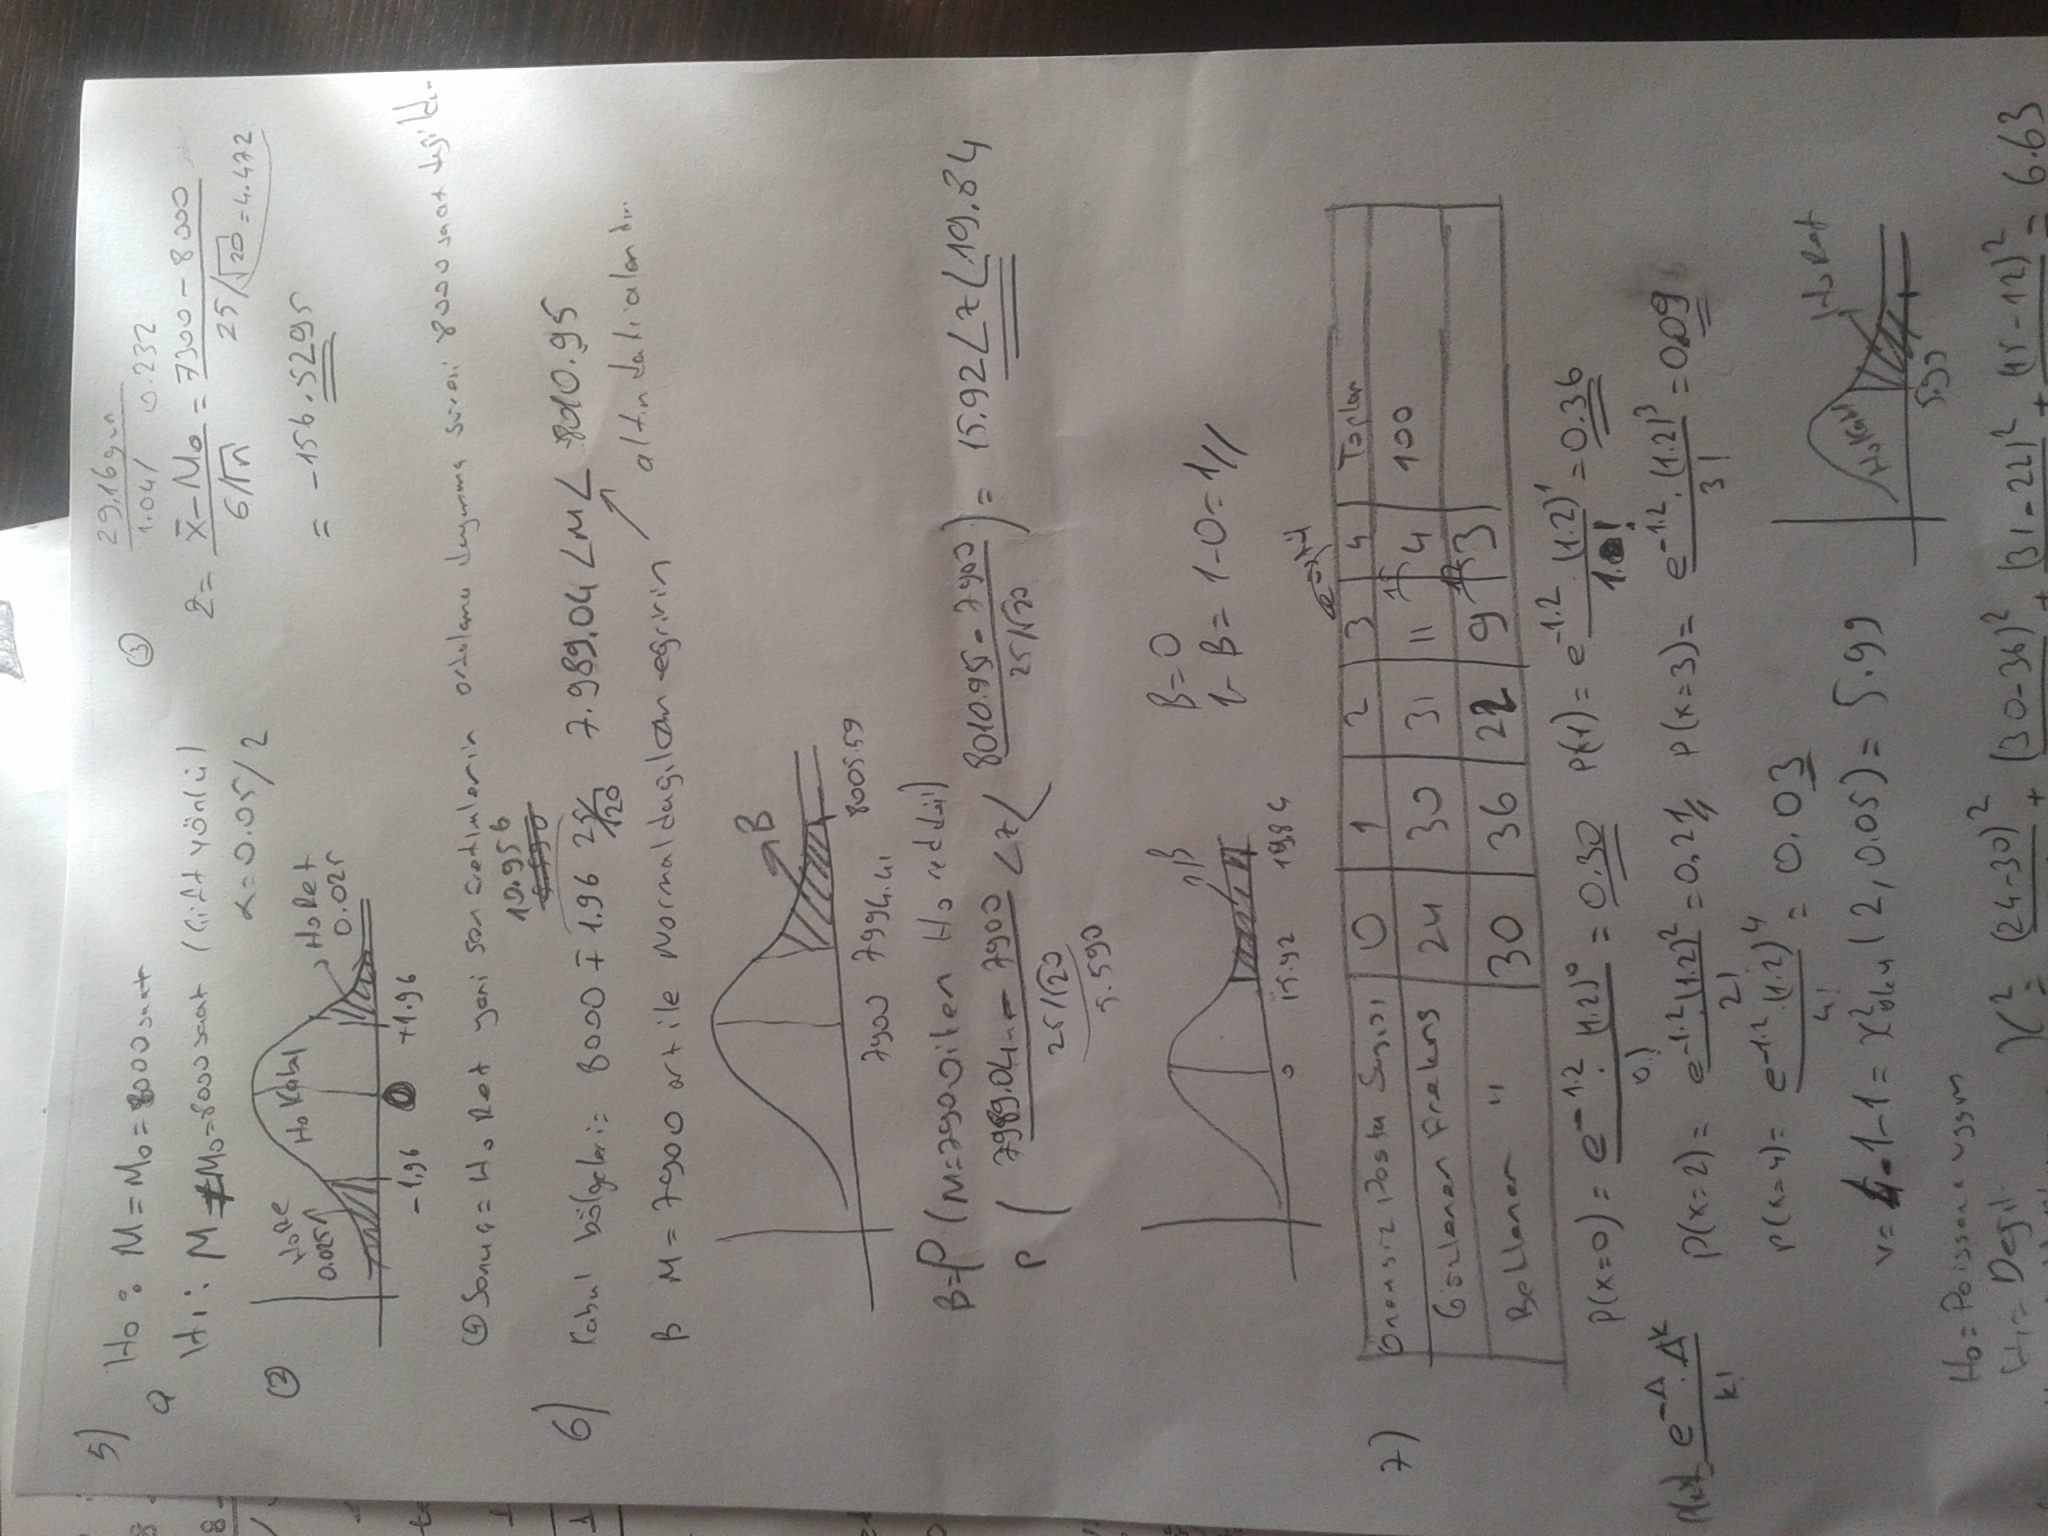 5)
H0 : M = M0 = 8000 saat
H1 : M ≠ M0 = 8000 saat (Çift yönlü)
α = 0.05/2
②
H0 Re
0.025
H0 Kabul
H0 Ret
0.025
-1,96 0 +1.96
③
29,16 gün
1.041 0.232
Z = x̄ - M0 / б/√n = 7300 - 8000 / 25/√20 = 4.472
= -156.5295
④ Sonuç = H0 Ret yani son üretimlerin ortalama dayanma süresi 8000 saat değildir
10.956
6)
Kabul bölgeleri = 8000 ∓ 1.96 25/√20 7.989.04 < M < 8010.95
β M = 7900 ort ile Normal dağılan eğrinin altındaki alandır
B
7900 7994.41 8005.59
B = P (M = 7900 iken H0 reddi)
P ( 7989.04 - 7900 / 25/√20 < z < 8010.95 - 7900 / 25/√20 ) = 15.92 < z < 19.84
5.590
β
0 15.92 19.84
β = 0
1 - β = 1 - 0 = 1
7)
Önemsiz Posta Sayısı 0 1 2 3 4 Toplam
Gözlenen Frekans 24 30 31 11 15 4 100
Beklenen " 30 36 22 9 12 3
P(x=0) = e^-1.2 . (1.2)^0 / 0! = 0.30 P(x1) = e^-1.2 . (1.2)^1 / 1! = 0.36
e^-Δ . Δ^k / k! P(x=2) = e^-1.2 . (1.2)^2 / 2! = 0,21 P(x=3) = e^-1.2 . (1.2)^3 / 3! = 0.09
P(x=4) = e^-1.2 . (1.2)^4 / 4! = 0.03
v = 4-1-1 = X² (2, 0.05) = 5.99
H0 Kabl
H0 Ret
5.99
H0 = Poissona uygun
H1 = Değil
X² = (24-30)² + (30-36)² + (31-22)² + (15-12)² = 6.63